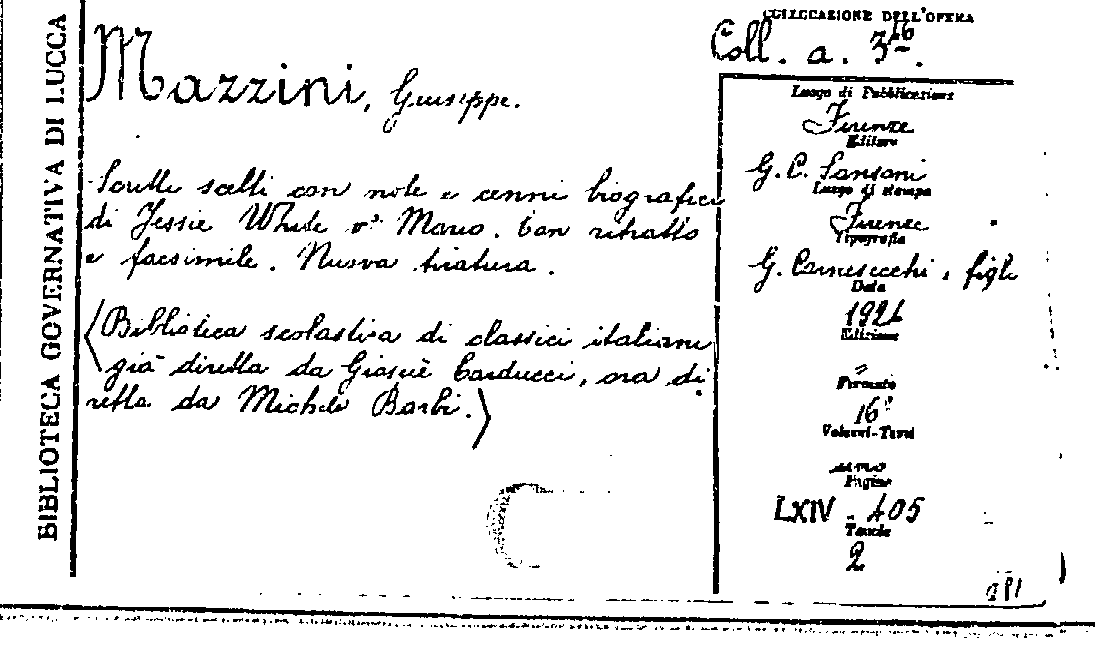 BIBLIOTECA GOVERNATIVA DI LUCCA
COLLOCAZIONE DELL'OPERA
Coll. a. 3 16.
Mazzini, Giuseppe.
Scritti scelti con note e cenni biografici
di Jessie White va Mario. Con ritratto
e facsimile. Nuova tiratura.
(Biblioteca scolastica di classici italiani
già diretta da Giosuè Carducci, ora di
retta da Michele Barbi.)
Luogo di Pubblicazione
Firenze
Editore
G. C. Sansoni
Luogo di stampa
Firenze
Tipografia
G. Carnesecchi e figli
Data
1921
Edizione
"
Formato
16°
Volumi-Tomi
uno
Pagine
LXIV - 405
Tavole
2